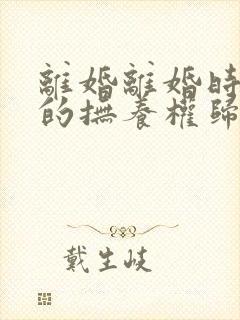 離婚離婚時
的撫養權歸
戴生岐